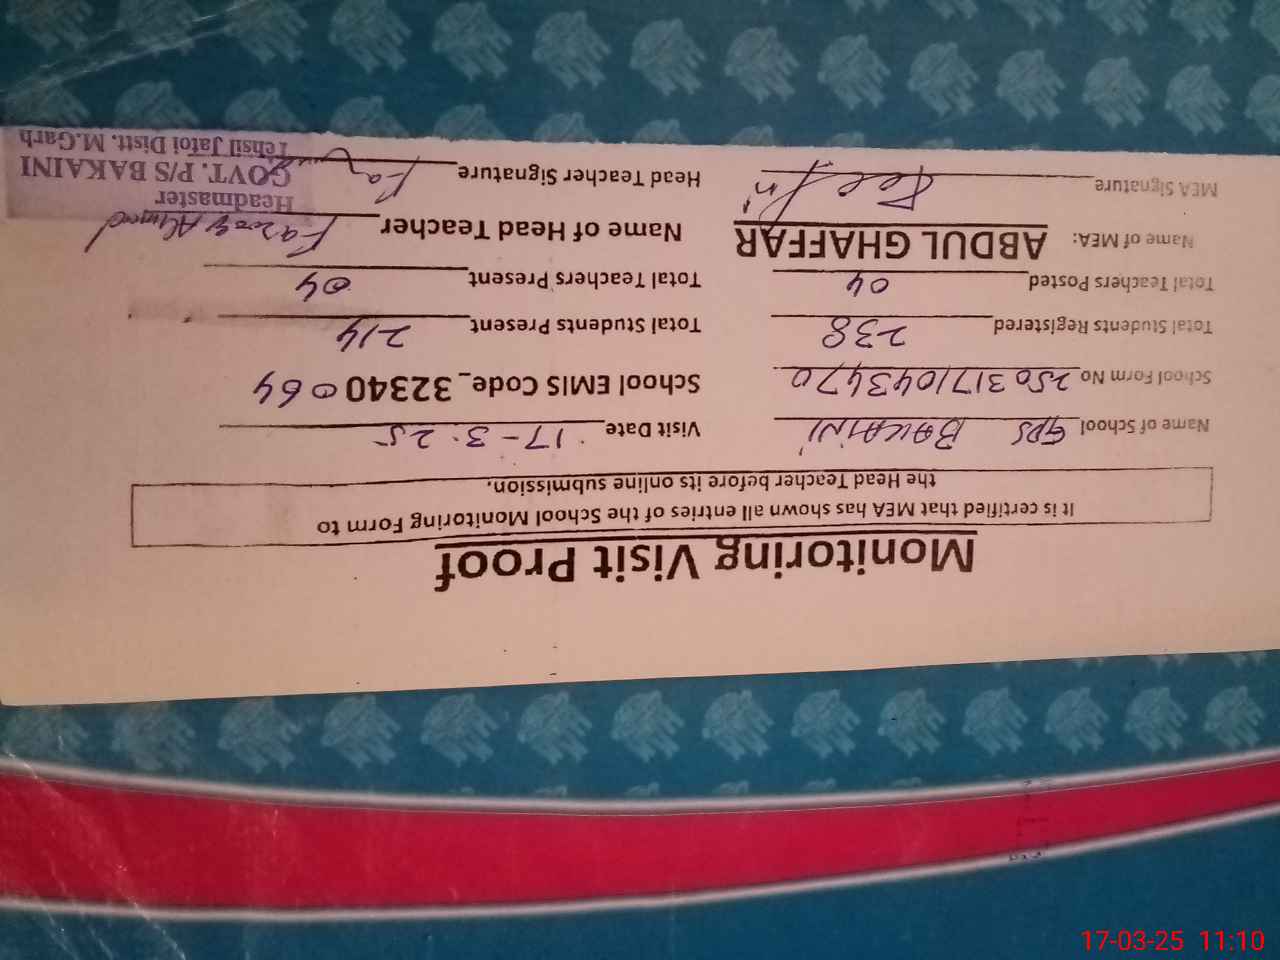 Monitoring Visit Proof
It is certified that MEA has shown all entries of the School Monitoring Form to
the Head Teacher before its online submission.
Name of School GPS BAKAINI Visit Date 17-3-25
School Form No 2503171043470 School EMIS Code_ 32340064
Total Students Registered 238 Total Students Present 214
Total Teachers Posted 04 Total Teachers Present 04
Name of MEA: ABDUL GHAFFAR Name of Head Teacher Farooq Ahmad
MEA Signature Head Teacher Signature
Headmaster
GOVT. P/S BAKAINI
Tehsil Jatoi Distt. M.Garh
17-03-25 11:10